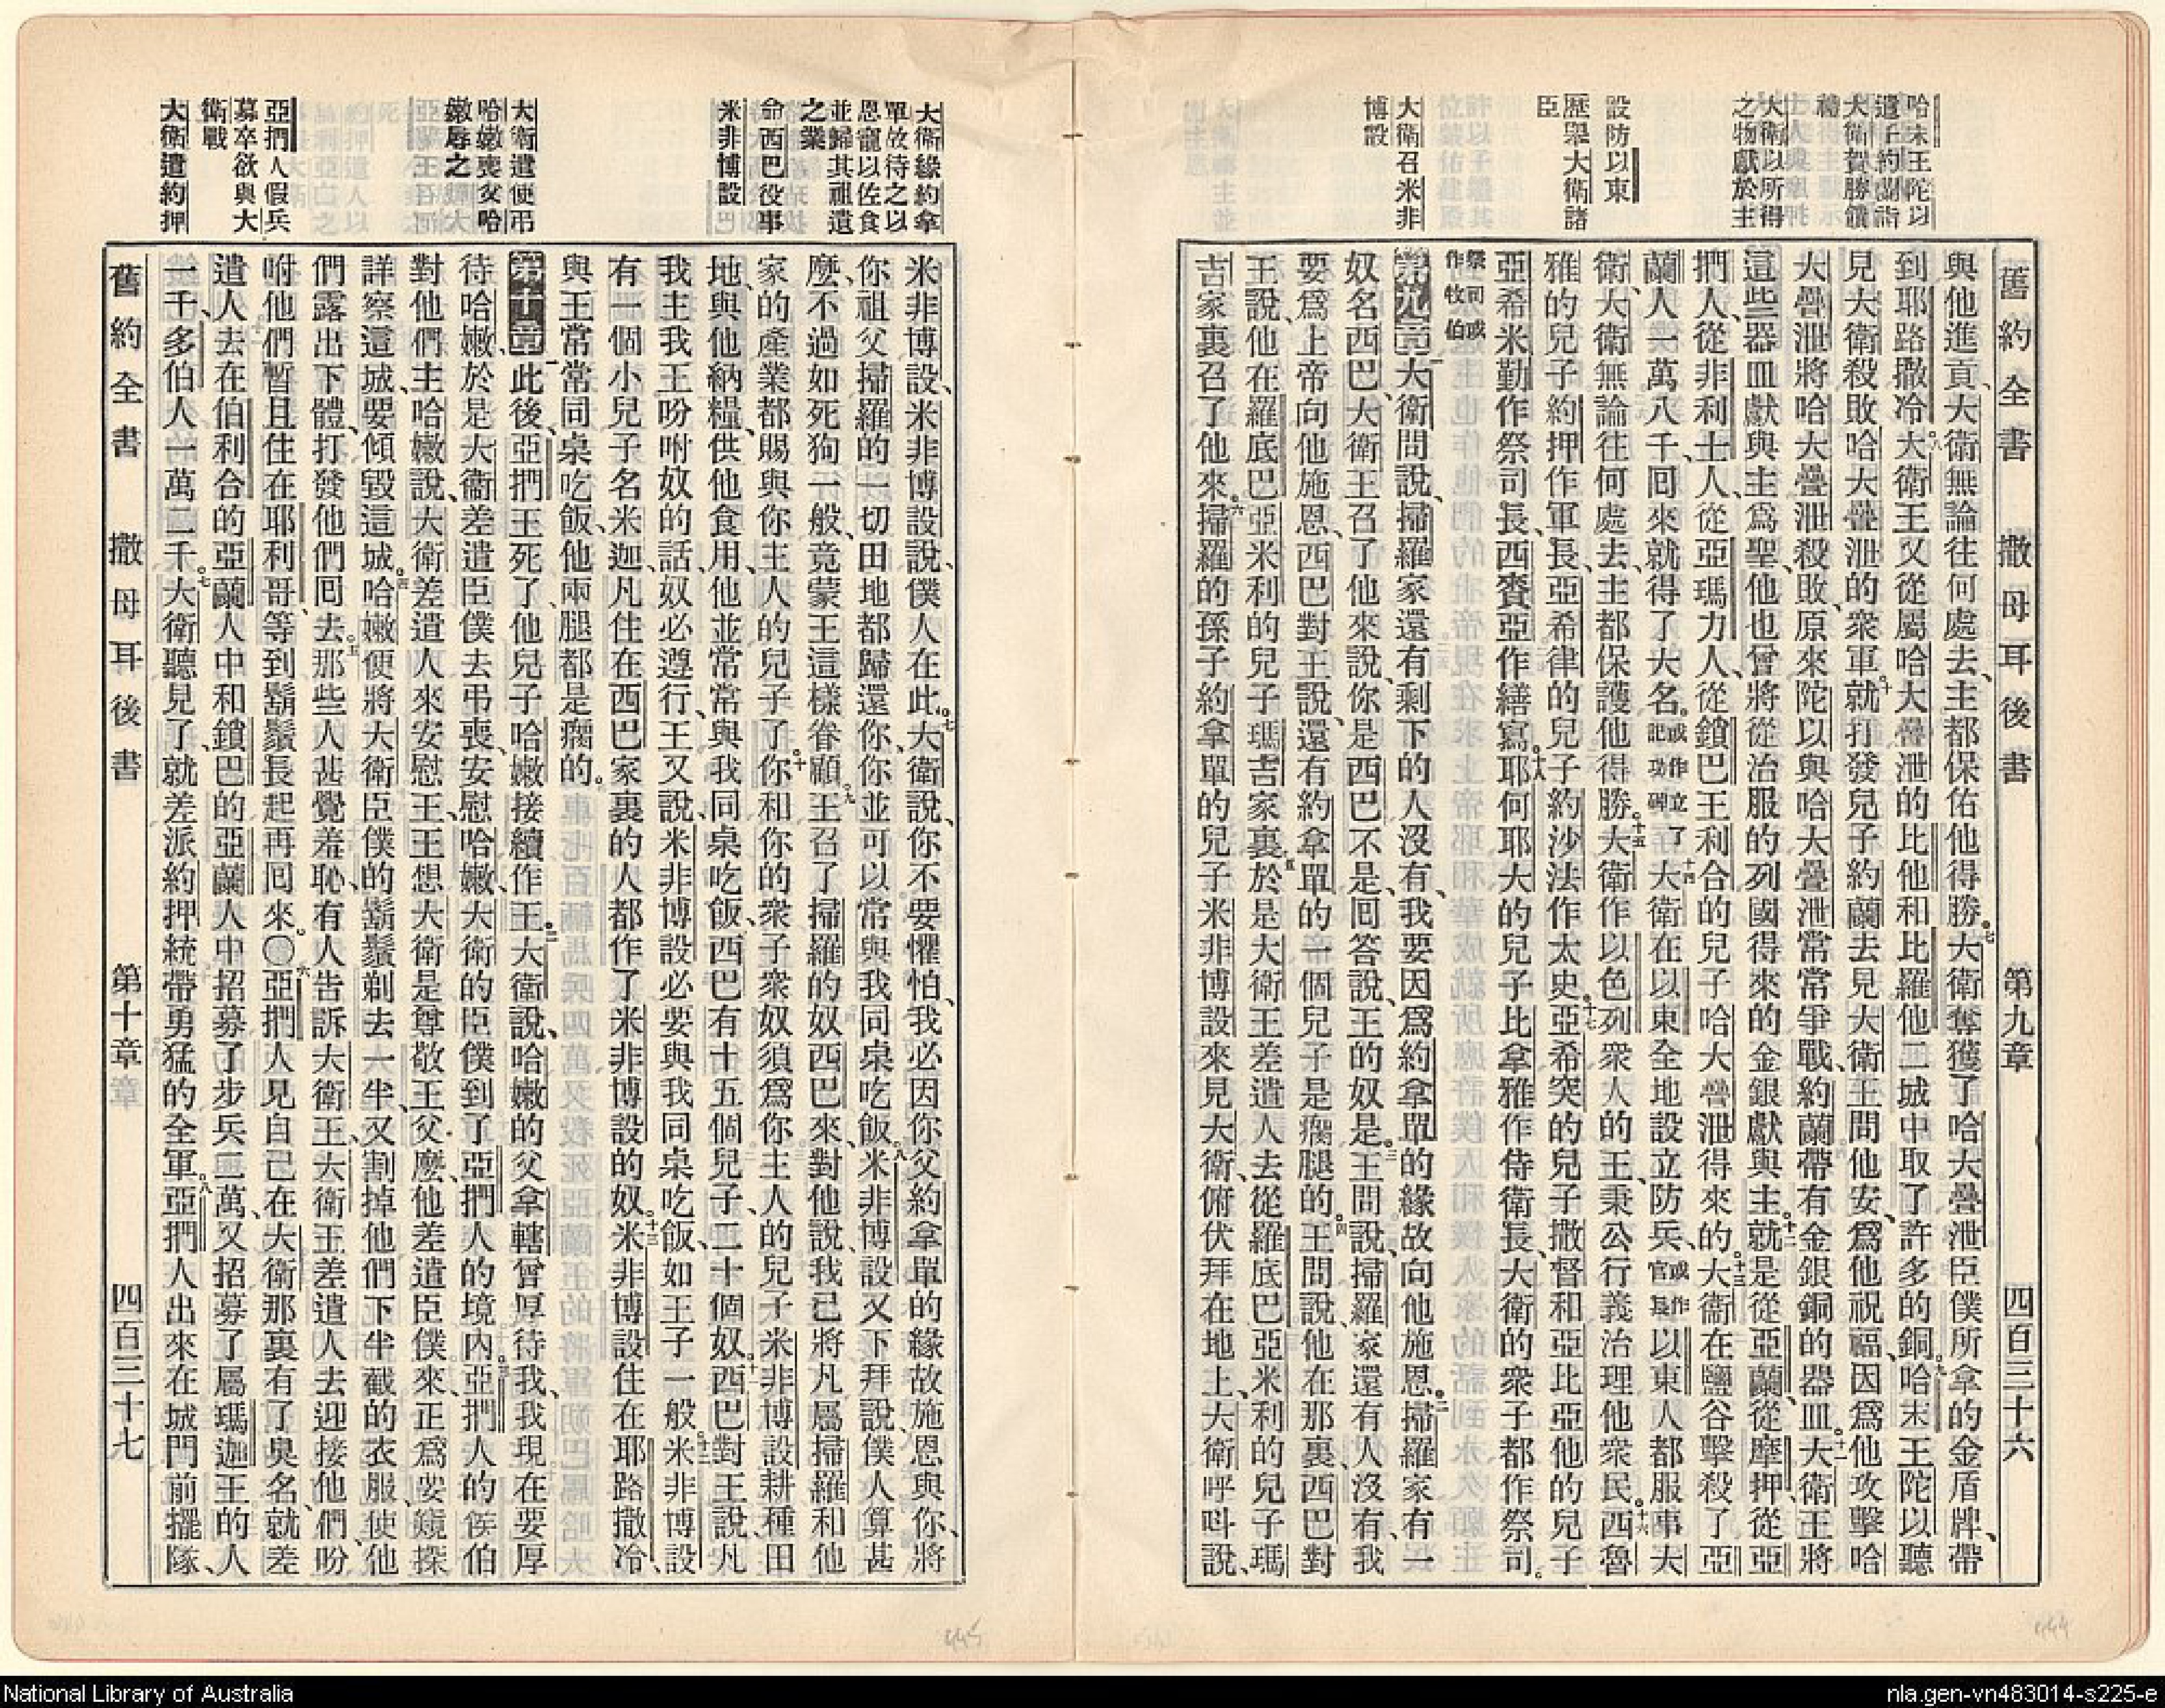 舊約全書 撒母耳後書 第九章 四百三十六
哈末王陀以
遣子約蘭詣
大衛賀勝饋
禮
大衛以所得
之物獻於主
設防以東
歷舉大衛諸
臣
大衛召米非
博設
與他進貢、大衛無論往何處去、主都保佑他得勝。七大衛奪獲了哈大疊泄臣僕所拿的金盾牌、帶
到耶路撒冷。八大衛王又從屬哈大疊泄的比他和比羅他二城中取了許多的銅。九哈末王陀以聽
見大衛殺敗哈大疊泄的衆軍、十就打發兒子約蘭去見大衛王問他安、爲他祝福、因爲他攻擊哈
大疊泄將哈大疊泄殺敗、原來陀以與哈大疊泄常常爭戰、約蘭帶有金銀銅的器皿。十一大衛王將
這些器皿獻與主爲聖、他也曾將從治服的列國得來的金銀獻與主。十二就是從亞蘭、從摩押、從亞
捫人、從非利士人、從亞瑪力人、從鎖巴王利合的兒子哈大疊泄得來的。十三大衛在鹽谷擊殺了亞
蘭人一萬八千、回來就得了大名。或作立記功碑了十四大衛在以東全地設立防兵、或作官長以東人都服事大
衛、大衛無論往何處去、主都保護他得勝。十五大衛作以色列衆人的王、秉公行義治理他衆民。十六西魯
雅的兒子約押作軍長、亞希律的兒子約沙法作太史。十七亞希突的兒子撒督和亞比亞他的兒子
亞希米勒作祭司長、西賚亞作繕寫。十八耶何耶大的兒子比拿雅作侍衛長、大衛的衆子都作祭司。
祭司或作牧伯
第九章 一大衛問說、掃羅家還有剩下的人沒有、我要因爲約拿單的緣故向他施恩。二掃羅家有一
奴名西巴、大衛王召了他來說、你是西巴不是、回答說、王的奴是。三王問說、掃羅家還有人沒有、我
要爲上帝向他施恩、西巴對王說、還有約拿單的一個兒子是瘸腿的。四王問說、他在那裏、西巴對
王說、他在羅底巴亞米利的兒子瑪吉家裏。五於是大衛王差遣人去從羅底巴亞米利的兒子瑪
吉家裏召了他來。六掃羅的孫子約拿單的兒子米非博設來見大衛、俯伏拜在地上、大衛呼叫說、
大衛緣約拿
單故待之以
恩寵以佐食
並歸其祖遺
之業
命西巴役事
米非博設
大衛遣使弔
哈嫩喪父哈
嫩辱之
亞捫人假兵
募卒欲與大
衛戰
大衛遣約押
米非博設、米非博設說、僕人在此。七大衛說、你不要懼怕、我必因你父約拿單的緣故施恩與你、將
你祖父掃羅的一切田地都歸還你、你並可以常與我同桌吃飯。八米非博設又下拜說、僕人算甚
麼、不過如死狗一般、竟蒙王這樣眷顧。九王召了掃羅的奴西巴來、對他說、我已將凡屬掃羅和他
家的產業都賜與你主人的兒子了。十你和你的衆子衆奴須爲你主人的兒子米非博設耕種田
地、與他納糧、供他食用、他並常常與我同桌吃飯、西巴有十五個兒子、二十個奴。十一西巴對王說、凡
我主我王吩咐奴的話、奴必遵行、王又說、米非博設必要與我同桌吃飯、如王子一般。十二米非博設
有一個小兒子名米迦、凡住在西巴家裏的人都作了米非博設的奴。十三米非博設住在耶路撒冷、
與王常常同桌吃飯、他兩腿都是瘸的。
第十章 一此後、亞捫王死了、他兒子哈嫩接續作王。二大衛說、哈嫩的父拿轄曾厚待我、我現在要厚
待哈嫩、於是大衛差遣臣僕去弔喪、安慰哈嫩、大衛的臣僕到了亞捫人的境內。三亞捫人的侯伯
對他們主哈嫩說、大衛差遣人來安慰王、王想大衛是尊敬王父麼、他差遣臣僕來、正爲要窺探
詳察這城、要傾毀這城。四哈嫩便將大衛臣僕的鬍鬚剃去一半、又割掉他們下半截的衣服、使他
們露出下體、打發他們回去。五那些人甚覺羞恥、有人告訴大衛王、大衛王差遣人去迎接他們、吩
咐他們暫且住在耶利哥、等到鬍鬚長起再回來。〇六亞捫人見自己在大衛那裏有了臭名、就差
遣人去在伯利合的亞蘭人中和鎖巴的亞蘭人中招募了步兵二萬、又招募了屬瑪迦王的人
一千、多伯人一萬二千。七大衛聽見了、就差派約押統帶勇猛的全軍。八亞捫人出來在城門前擺隊、
舊約全書 撒母耳後書 第十章 四百三十七
445
444
National Library of Australia
nla.gen-vn483014-s225-e